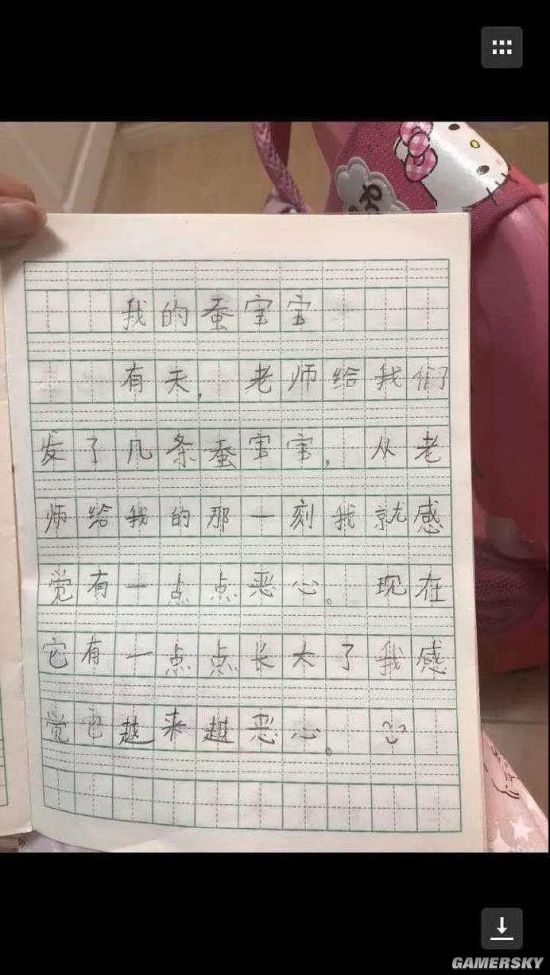 我的蚕宝宝
有天，老师给我们
发了几条蚕宝宝，从老
师给我的那一刻我就感
觉有一点点恶心。现在
它有一点点长大了我感
觉它越来越恶心。
GAMERSKY